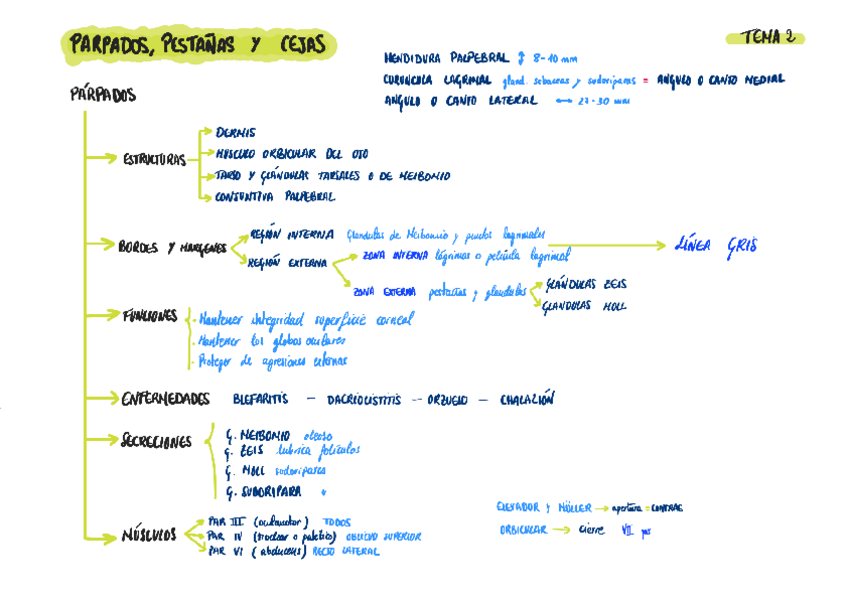 PARPADOS, PESTAÑAS Y CEJAS
TEMA 2
HENDIDURA PALPEBRAL ↕ 8-10 mm
CURUNCULA LAGRIMAL gland. sebaceas y sudoriparas = ANGULO O CANTO MEDIAL
ANGULO O CANTO LATERAL ↔ 27-30 mm
PÁRPADOS
ESTRUCTURAS
DERMIS
MÚSCULO ORBICULAR DEL OJO
TARSO Y GLÁNDULAS TARSALES O DE MEIBOMIO
CONJUNTIVA PALPEBRAL
BORDES Y MARGENES
REGIÓN INTERNA Glandulas de Meibomio y puntos lagrimales → LÍNEA GRIS
REGIÓN EXTERNA
ZONA INTERNA lágrimas o película lagrimal
ZONA EXTERNA pestañas y glandulas
GLÁNDULAS ZEIS
GLANDULAS MOLL
FUNCIONES
· Mantener integridad superficie corneal
· Mantener los globos oculares
· Proteger de agresiones externas
ENFERMEDADES BLEFARITIS – DACRIOCISTITIS – ORZUELO – CHALAZIÓN
SECRECIONES
G. MEIBOMIO oleoso
G. ZEIS lubrica folículos
G. MOLL sudoriparas
G. SUDORIPARA "
MÚSCULOS
PAR III (oculomotor) TODOS
PAR IV (troclear o patético) OBLICUO SUPERIOR
PAR VI (abducens) RECTO LATERAL
ELEVADOR Y MÜLLER → apertura = CONTRAE
ORBICULAR → cierre VII par